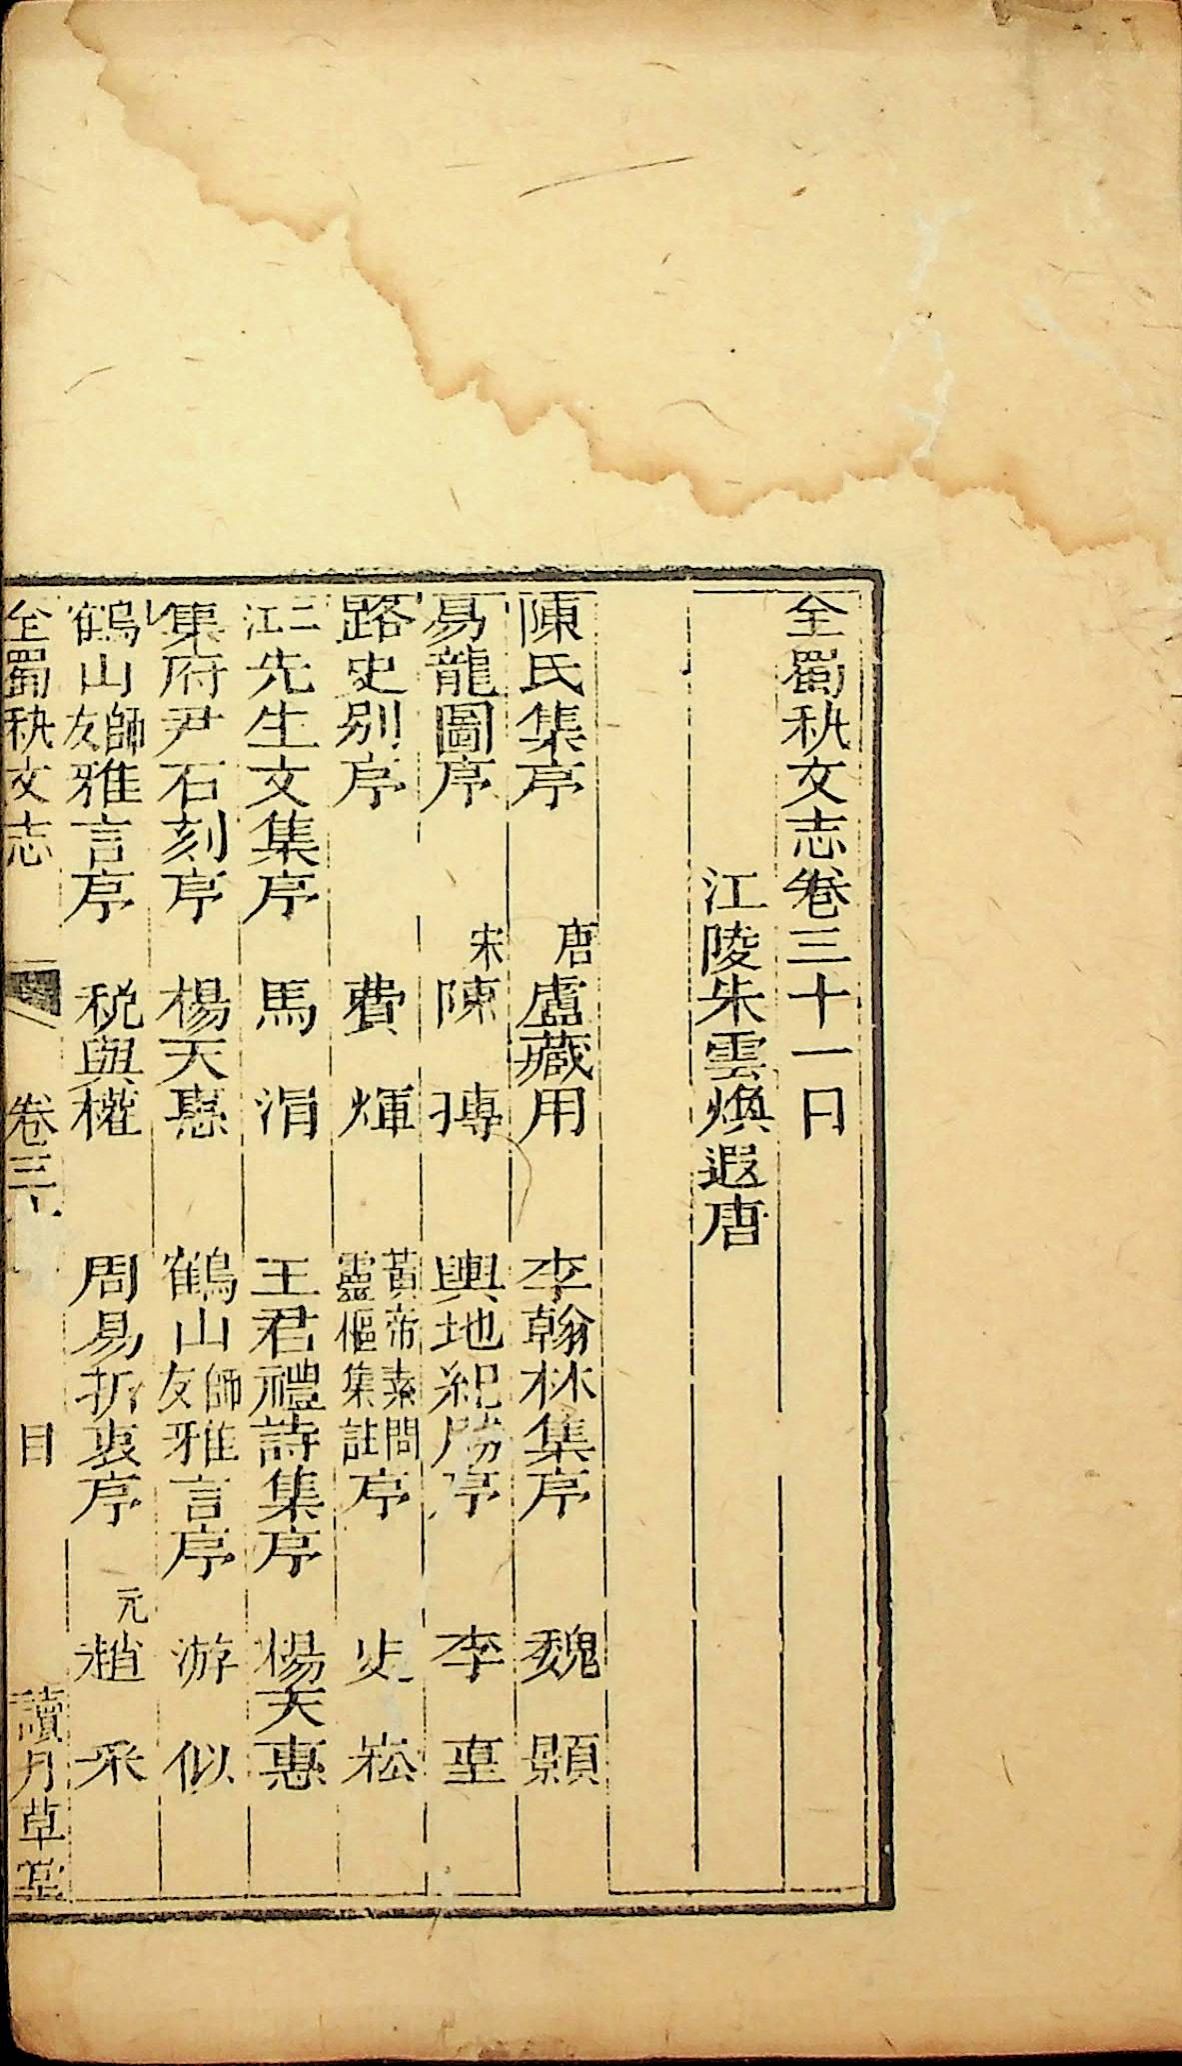 全蜀秇文志卷三十一目
江陵朱雲煥遐唐
陳氏集序 唐盧藏用 李翰林集序 魏顥
易龍圖序 宋陳摶 輿地紀勝序 李𡌴
路史别序 費煇 黃帝素問靈樞集註序 史崧
二江先生文集序 馬涓 王君禮詩集序 楊天惠
集府尹石刻序 楊天惠 鶴山師友雅言序 游似
鶴山師友雅言序 税與權 周易折衷序 元趙采
全蜀秇文志 卷三十一 目 讀月草堂